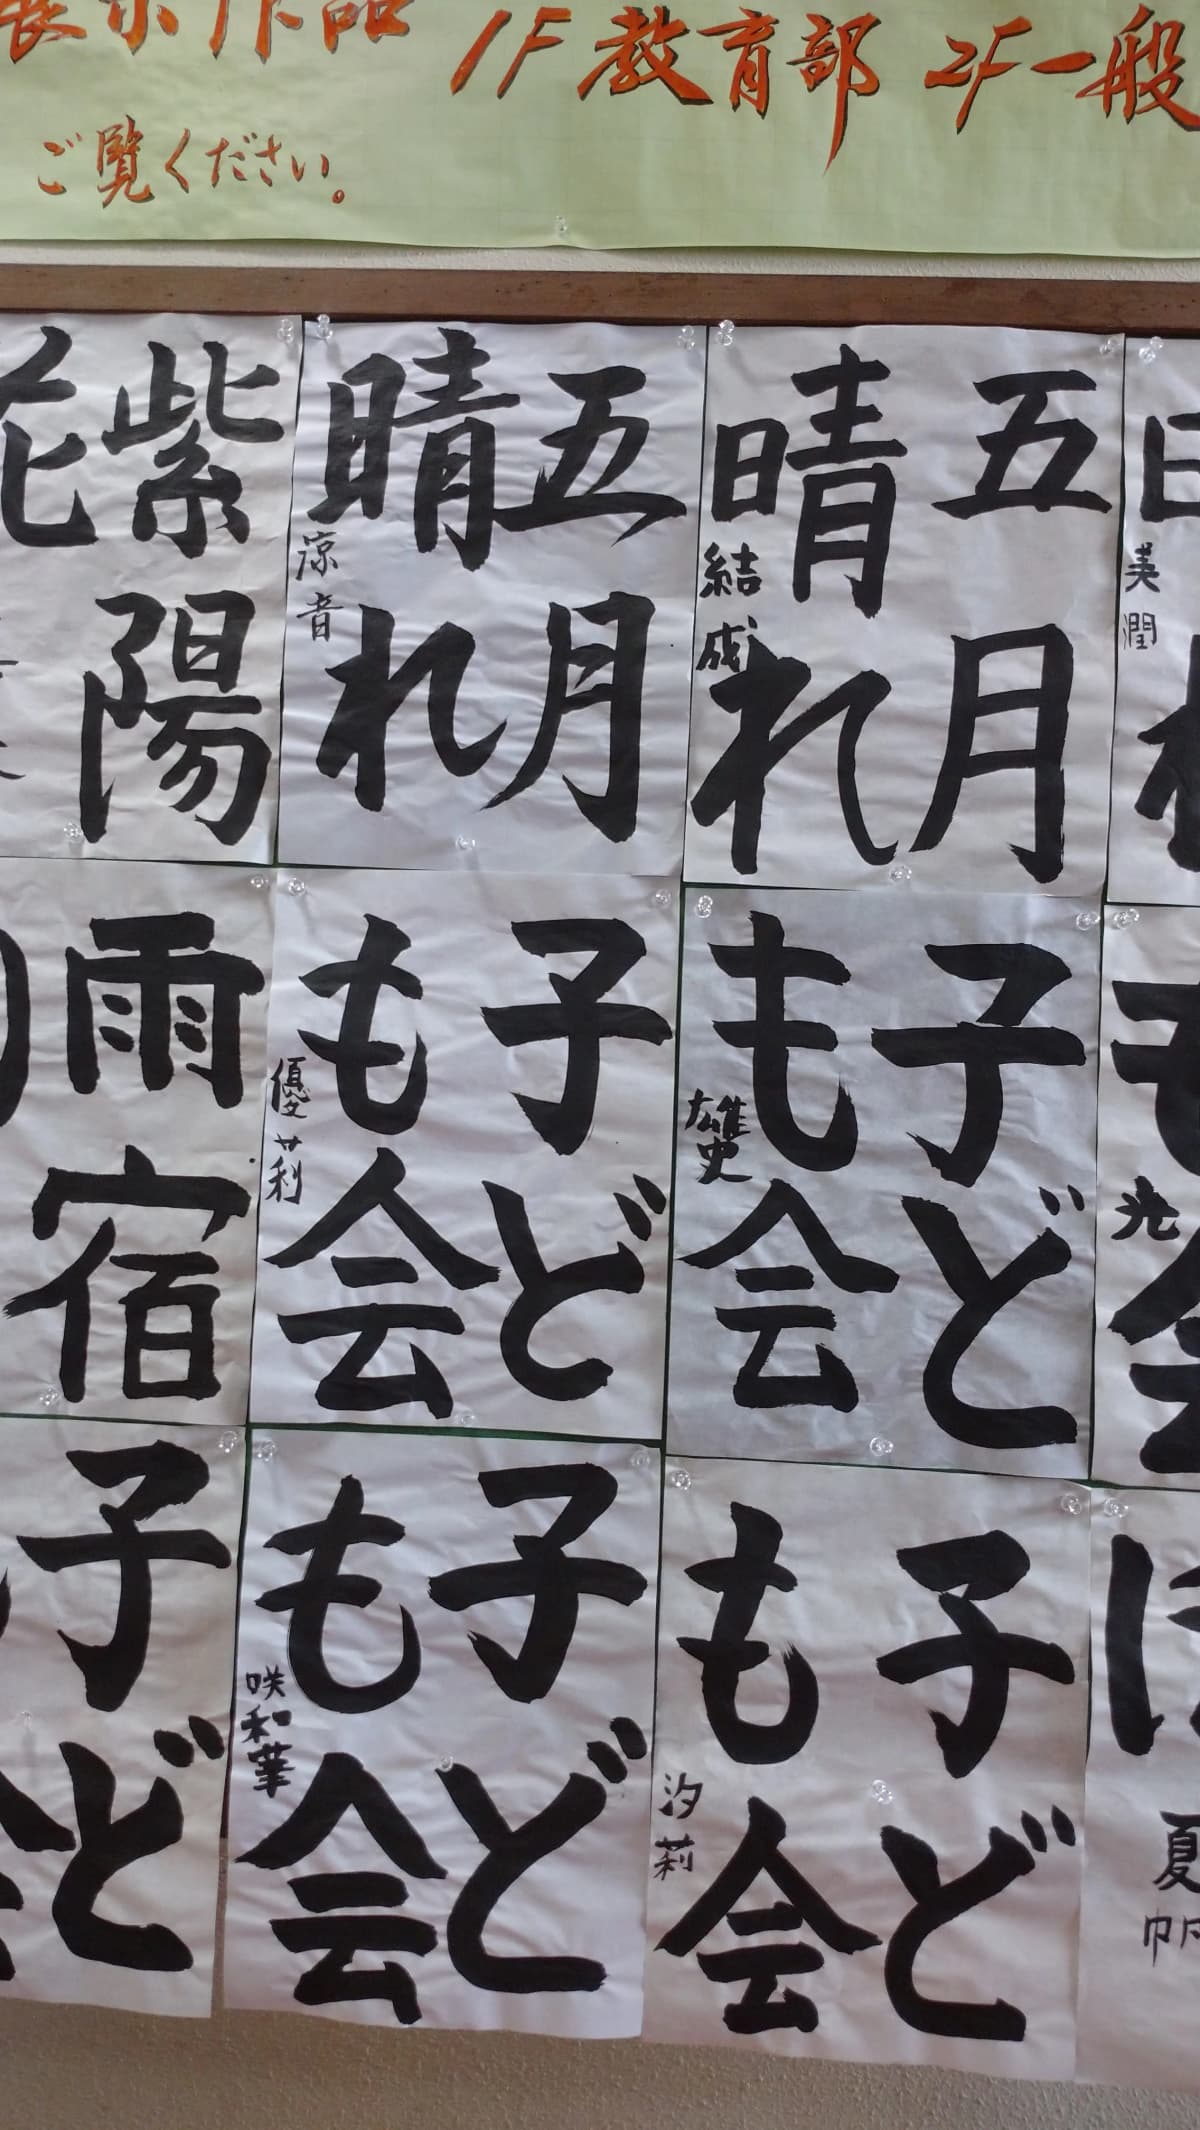 展示作品 1F教育部 2F一般
ご覧ください。
五月
晴れ
結成
五月
晴れ
涼音
紫陽
花
美潤
子ど
も会
雄史
子ど
も会
優莉
雨宿
光
子ど
も会
汐莉
子ど
も会
咲和華
子ど
夏帆